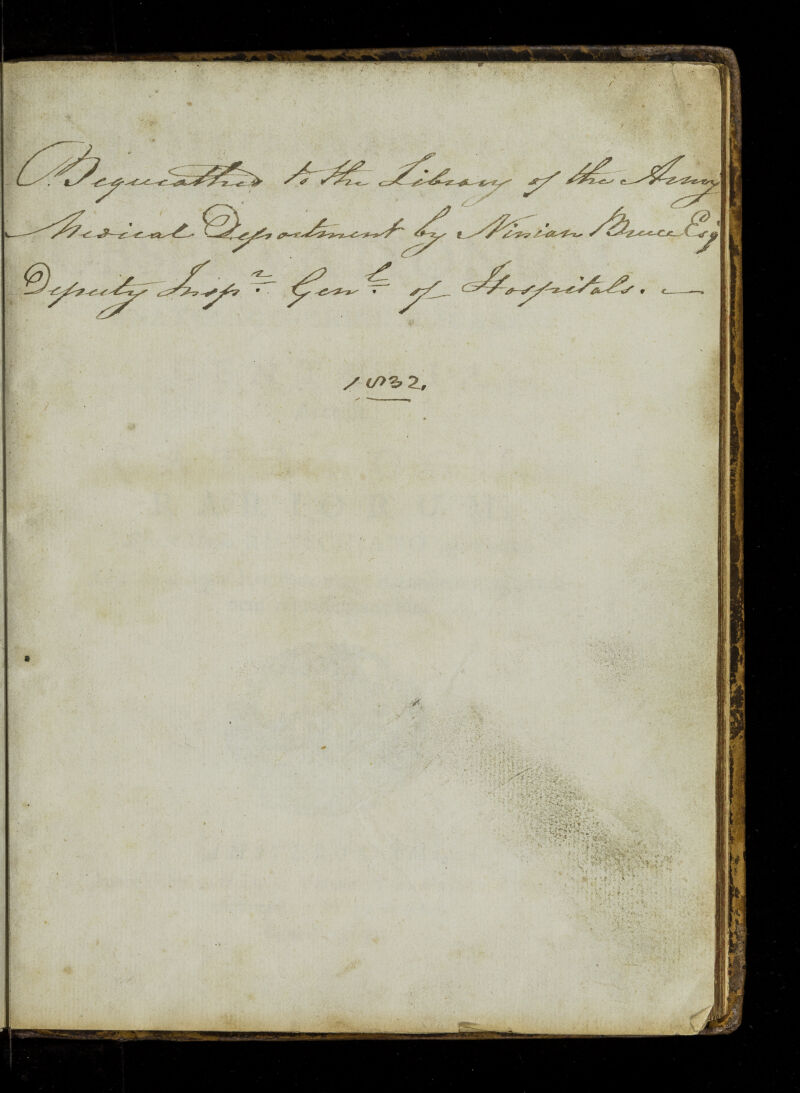 Bequeathed to the Library of the Army
Medical Department by Ninian Bruce Esq
Deputy Inspr. Genl. of Hospitals. —
1832.